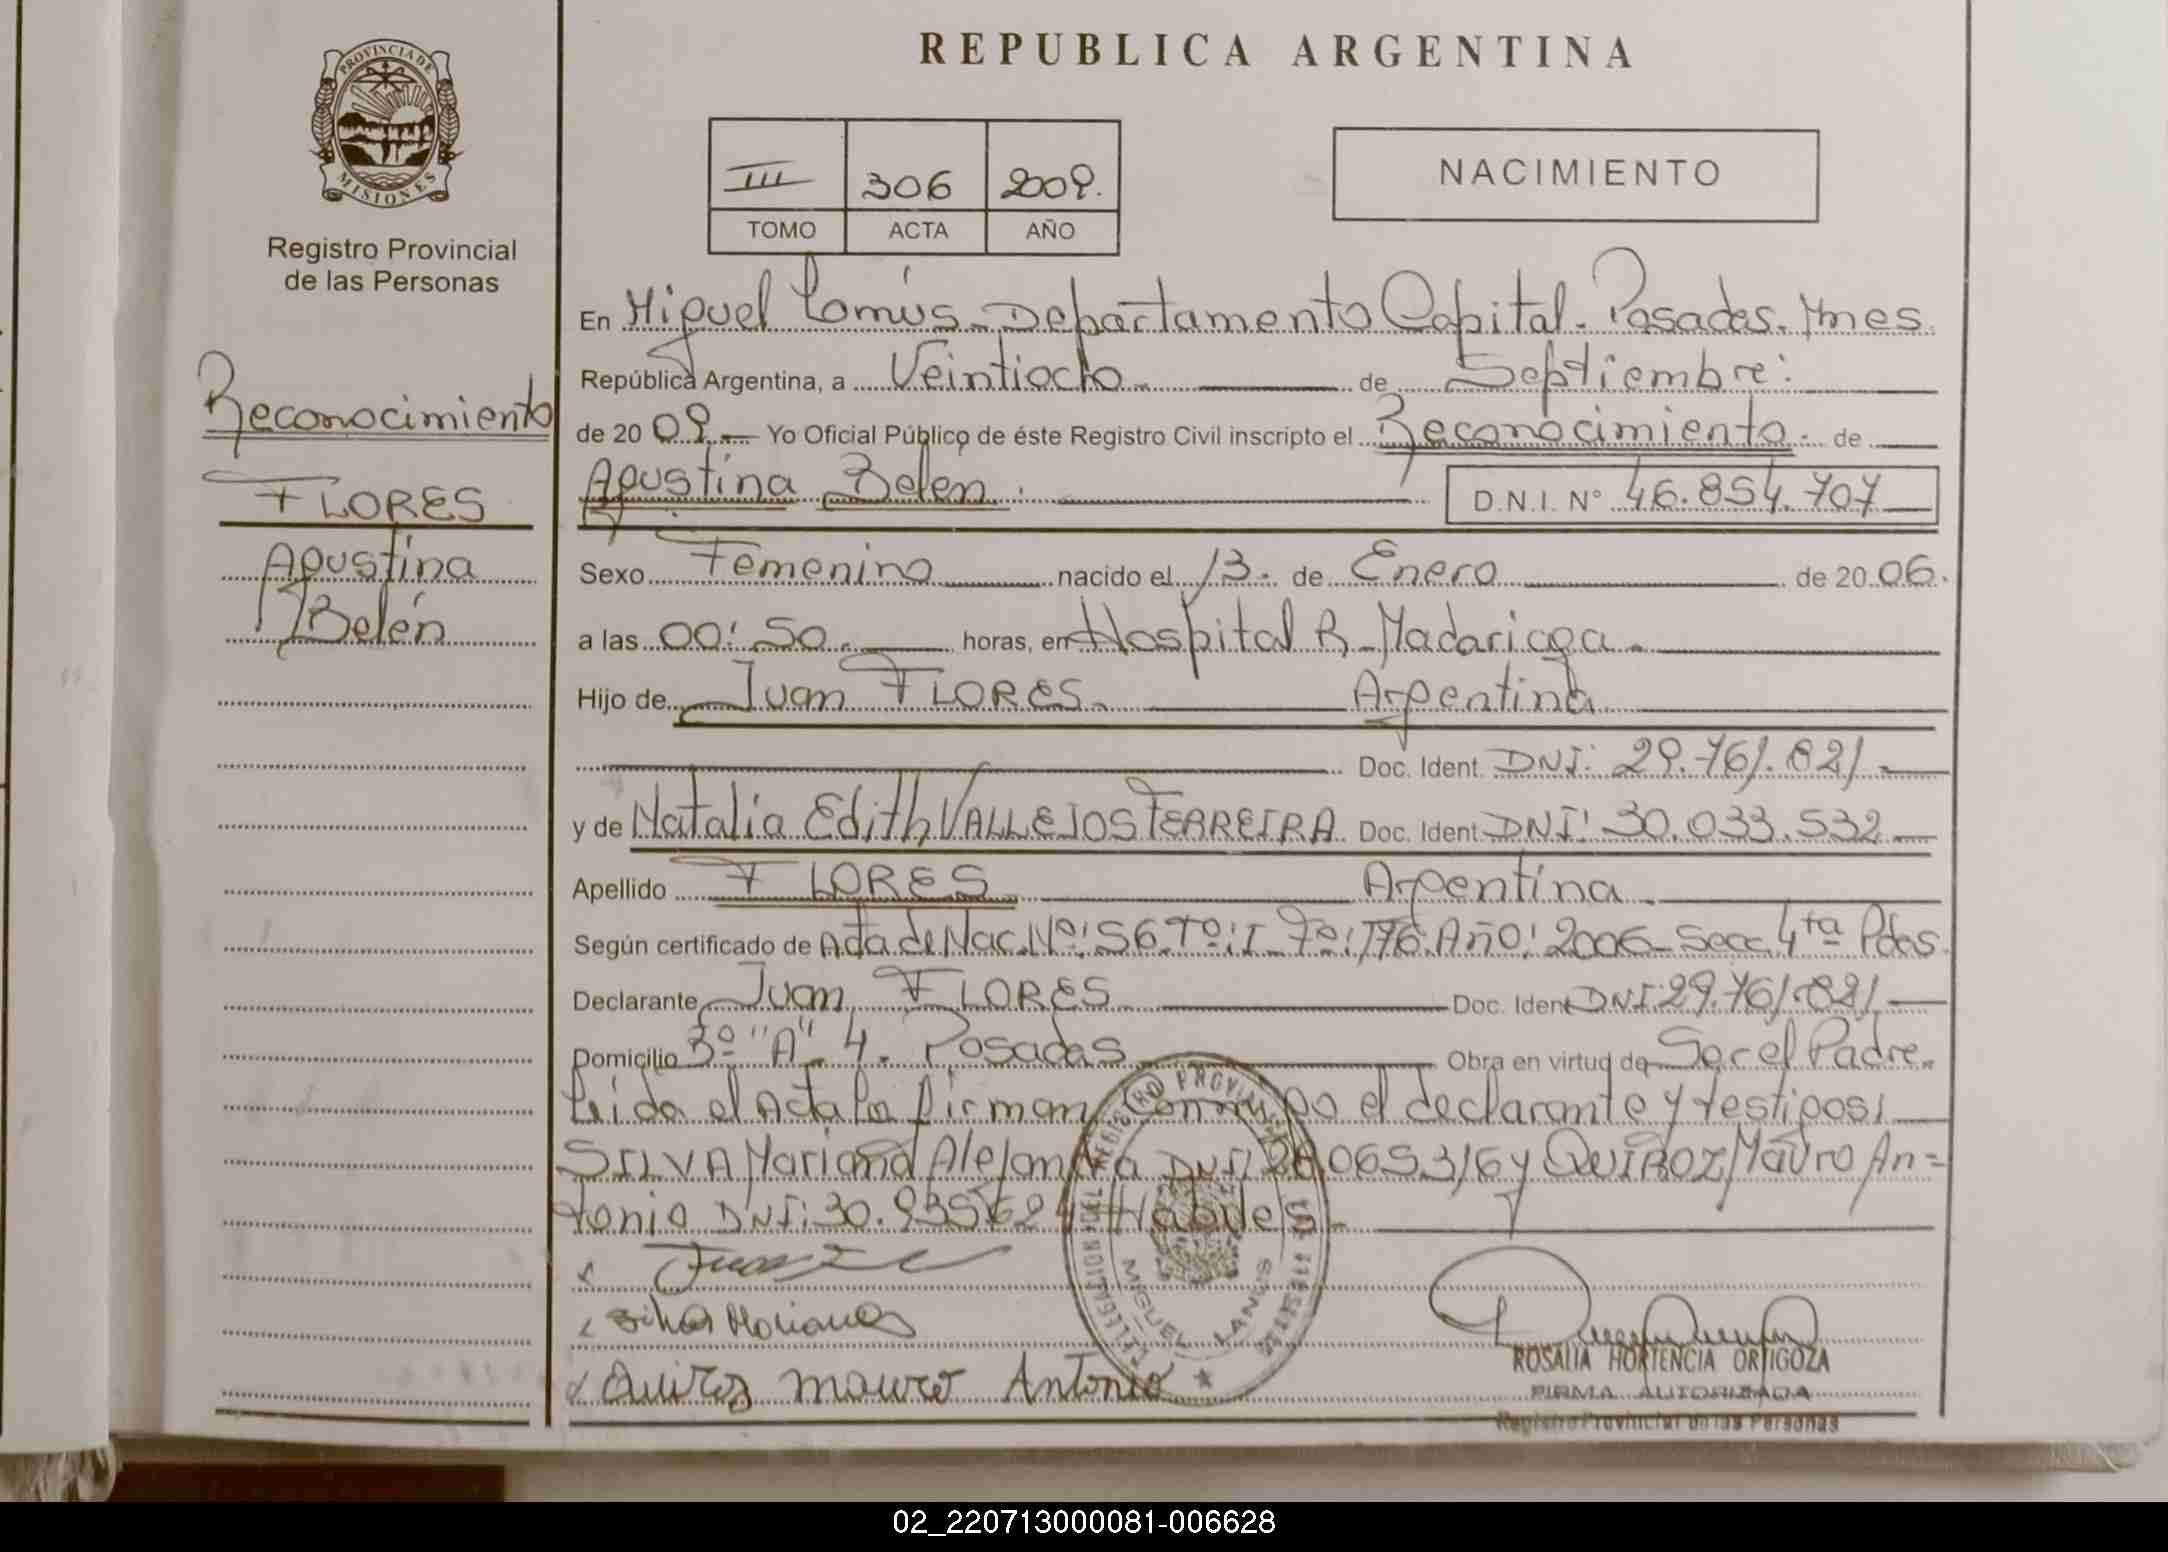 REPUBLICA ARGENTINA
PROVINCIA DE
MISIONES
Registro Provincial
de las Personas
III 306 2009.
TOMO ACTA AÑO
NACIMIENTO
En Miguel Lanús. Departamento Capital. Posadas. Mnes.
República Argentina, a Veintiocho de Septiembre:
de 20 09 Yo Oficial Público de éste Registro Civil inscripto el Reconocimiento. de
Agustina Belen. D.N.I. N° 46.854.707
Reconocimiento
FLORES
Agustina
Belén
Sexo Femenino nacido el 13. de Enero de 20 06.
a las 00:50. horas, en Hospital R. Madariaga.
Hijo de Juan FLORES. Argentina
Doc. Ident. DNI: 29.761.821
y de Natalia Edith VALLEJOS FERREIRA Doc. Ident. DNI: 30.033.532
Apellido FLORES Argentina
Según certificado de Acta de Nac. Nº: 56. Tº: I Fº: Año: 2006 Secc 4ta Pdas.
Declarante Juan FLORES Doc. Ident DNI: 29.761.821
Domicilio 3º "A" 4. Posadas Obra en virtud de Ser el Padre.
Leida el Acta la firman Conmigo el declarante y testigos:
SILVA Mariana Alejandra DNI y QUIROZ Mauro An=
tonio DNI: Habiles.
REGISTRO PROVINCIAL
DELEGACION
MIGUEL LANUS
Silva Mariana
Quiroz Mauro Antonio
ROSALIA HORTENCIA ORTIGOZA
FIRMA AUTORIZADA
Registro Provincial de las Personas
02_220713000081-006628